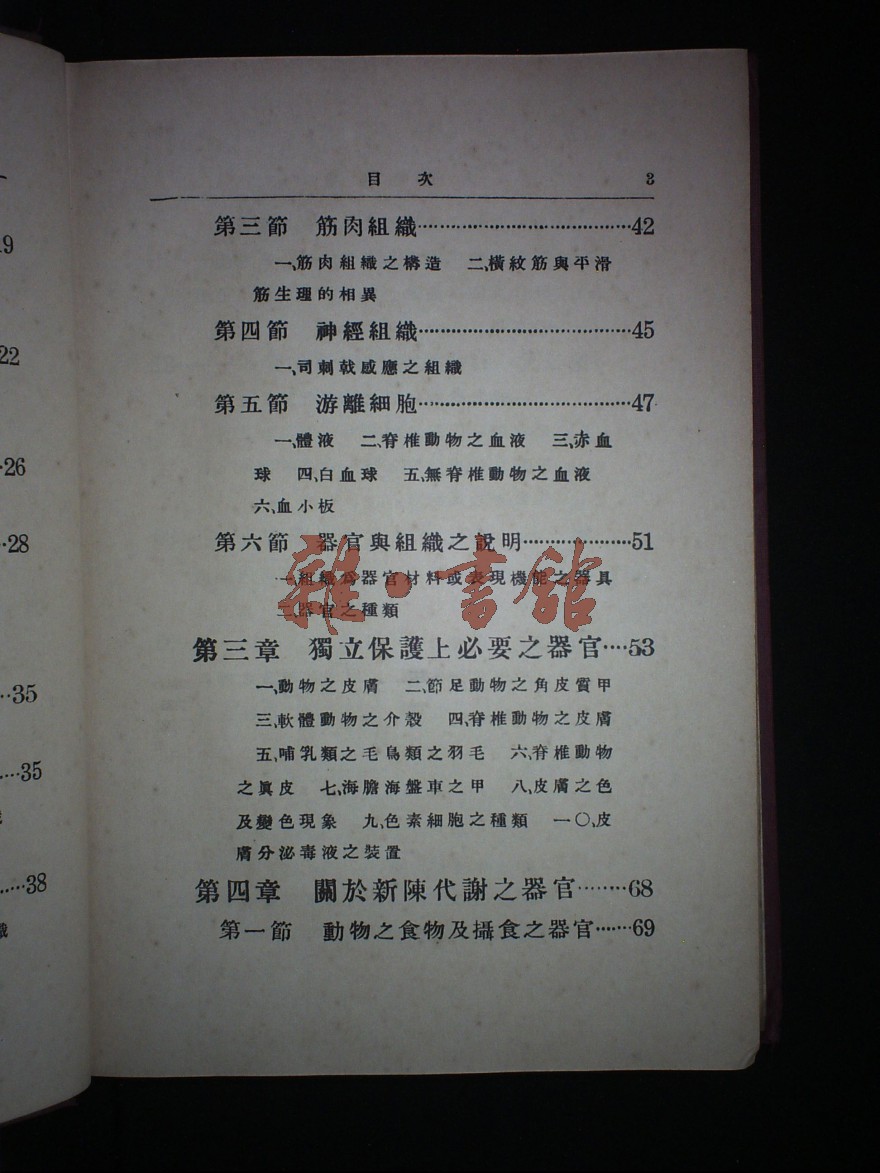 目次 3
第三節 筋肉組織……………………………42
一、筋肉組織之構造 二、橫紋筋與平滑
筋生理的相異
第四節 神經組織……………………………45
一、司刺戟感應之組織
第五節 游離細胞……………………………47
一、體液 二、脊椎動物之血液 三、赤血
球 四、白血球 五、無脊椎動物之血液
六、血小板
第六節 器官與組織之說明………………51
一、組織為器官材料或表現機能之器具
二、器官之種類
第三章 獨立保護上必要之器官……53
一、動物之皮膚 二、節足動物之角皮質甲
三、軟體動物之介殼 四、脊椎動物之皮膚
五、哺乳類之毛鳥類之羽毛 六、脊椎動物
之眞皮 七、海膽海盤車之甲 八、皮膚之色
及變色現象 九、色素細胞之種類 一〇、皮
膚分泌毒液之裝置
第四章 關於新陳代謝之器官………68
第一節 動物之食物及攝食之器官……69
雜·書館
19
22
26
28
35
35
38